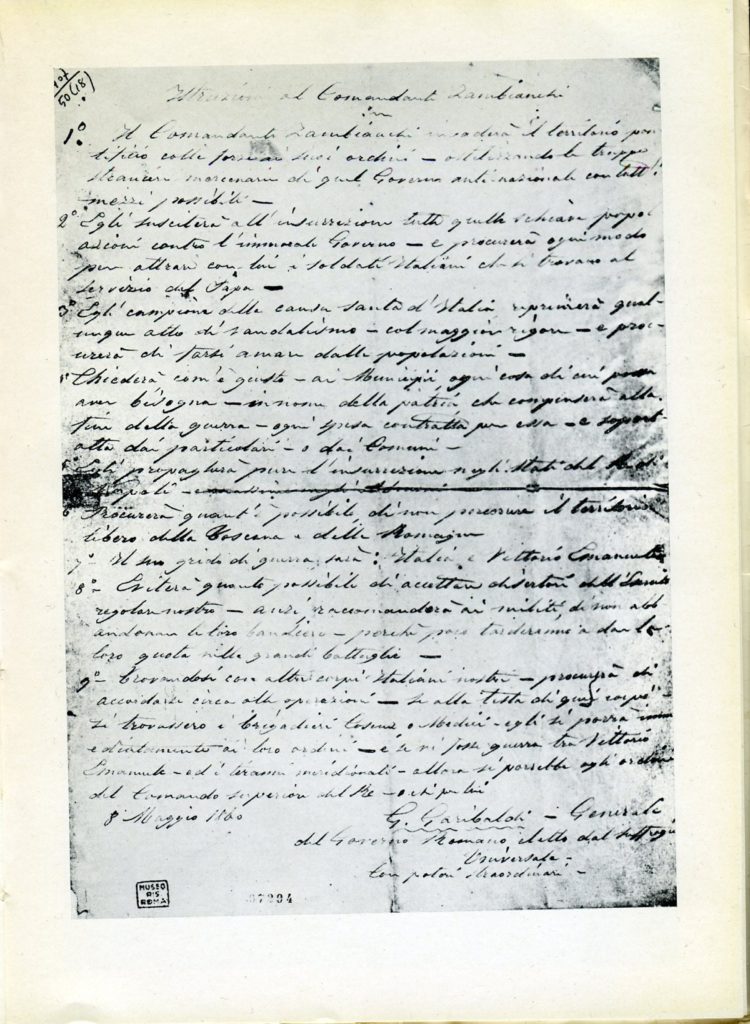 107
50 (18)
Istruzioni al Comandante Zambianchi
1º Il Comandante Zambianchi invaderà il territorio pon
tificio colle forze ai suoi ordini – osteggiando le truppe
straniere mercenarie di quel Governo anti-nazionale con tutt'i
mezzi possibili –
2º Egli susciterà all'insurrezione tutte quelle schiave popo
lazioni contro l'immorale Governo – e procurerà ogni modo
per attrarre con lui i soldati Italiani che si trovano al
servizio del Papa –
3º Egli campione della causa santa d'Italia reprimerà qual-
unque atto di vandalismo – col maggior rigore – e proc-
urerà di farsi amare dalle popolazioni –
Chiederà com'è giusto – ai Municipii ogni cosa di cui possa
aver bisogna – in nome della patria che compenserà alla
fine della guerra – ogni spesa contratta per essa – e sopport
atta dai particolari – o dai Comuni –
Egli propagherà pure l'insurrezione negli Stati del Re di
Napoli –
6 Procurerà quant'è possibile di non percorrere il territorio
libero della Toscana e delle Romagne
7º – Il suo grido di guerra sarà: Italia e Vittorio Emanuele
8º – Eviterà quanto possibile di accettare disertori dell'Esercito
regolare nostro – anzi raccomanderà ai militi di non abb
andonare le loro bandiere – perchè poco tarderanno a dar la
loro quota nelle grandi battaglie –
9º – Trovandosi con altri corpi Italiani nostri – procurerà di
accordarsi circa alle operazioni – se alla testa di quei corpi
si trovassero i brigadieri Cosenz o Medici – egli si porrà imm
ediatamente ai loro ordini – e se vi fosse guerra tra Vittorio
Emanuele – ed i tiranni meridionali – allora si porrebbe agli ordini
del Comando superiore del Re – o chi per lui
8 Maggio 1860
G. Garibaldi – Generale
del Governo Romano, eletto dal suffragio
Universale –
con poteri straordinari –
MUSEO
RIS
ROMA